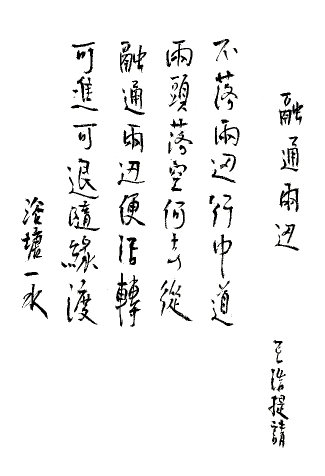 融通兩边
王浩提請
不落兩边行中道
兩頭落空何去從
融通兩边便活轉
可進可退隨緣渡
浴塘一水